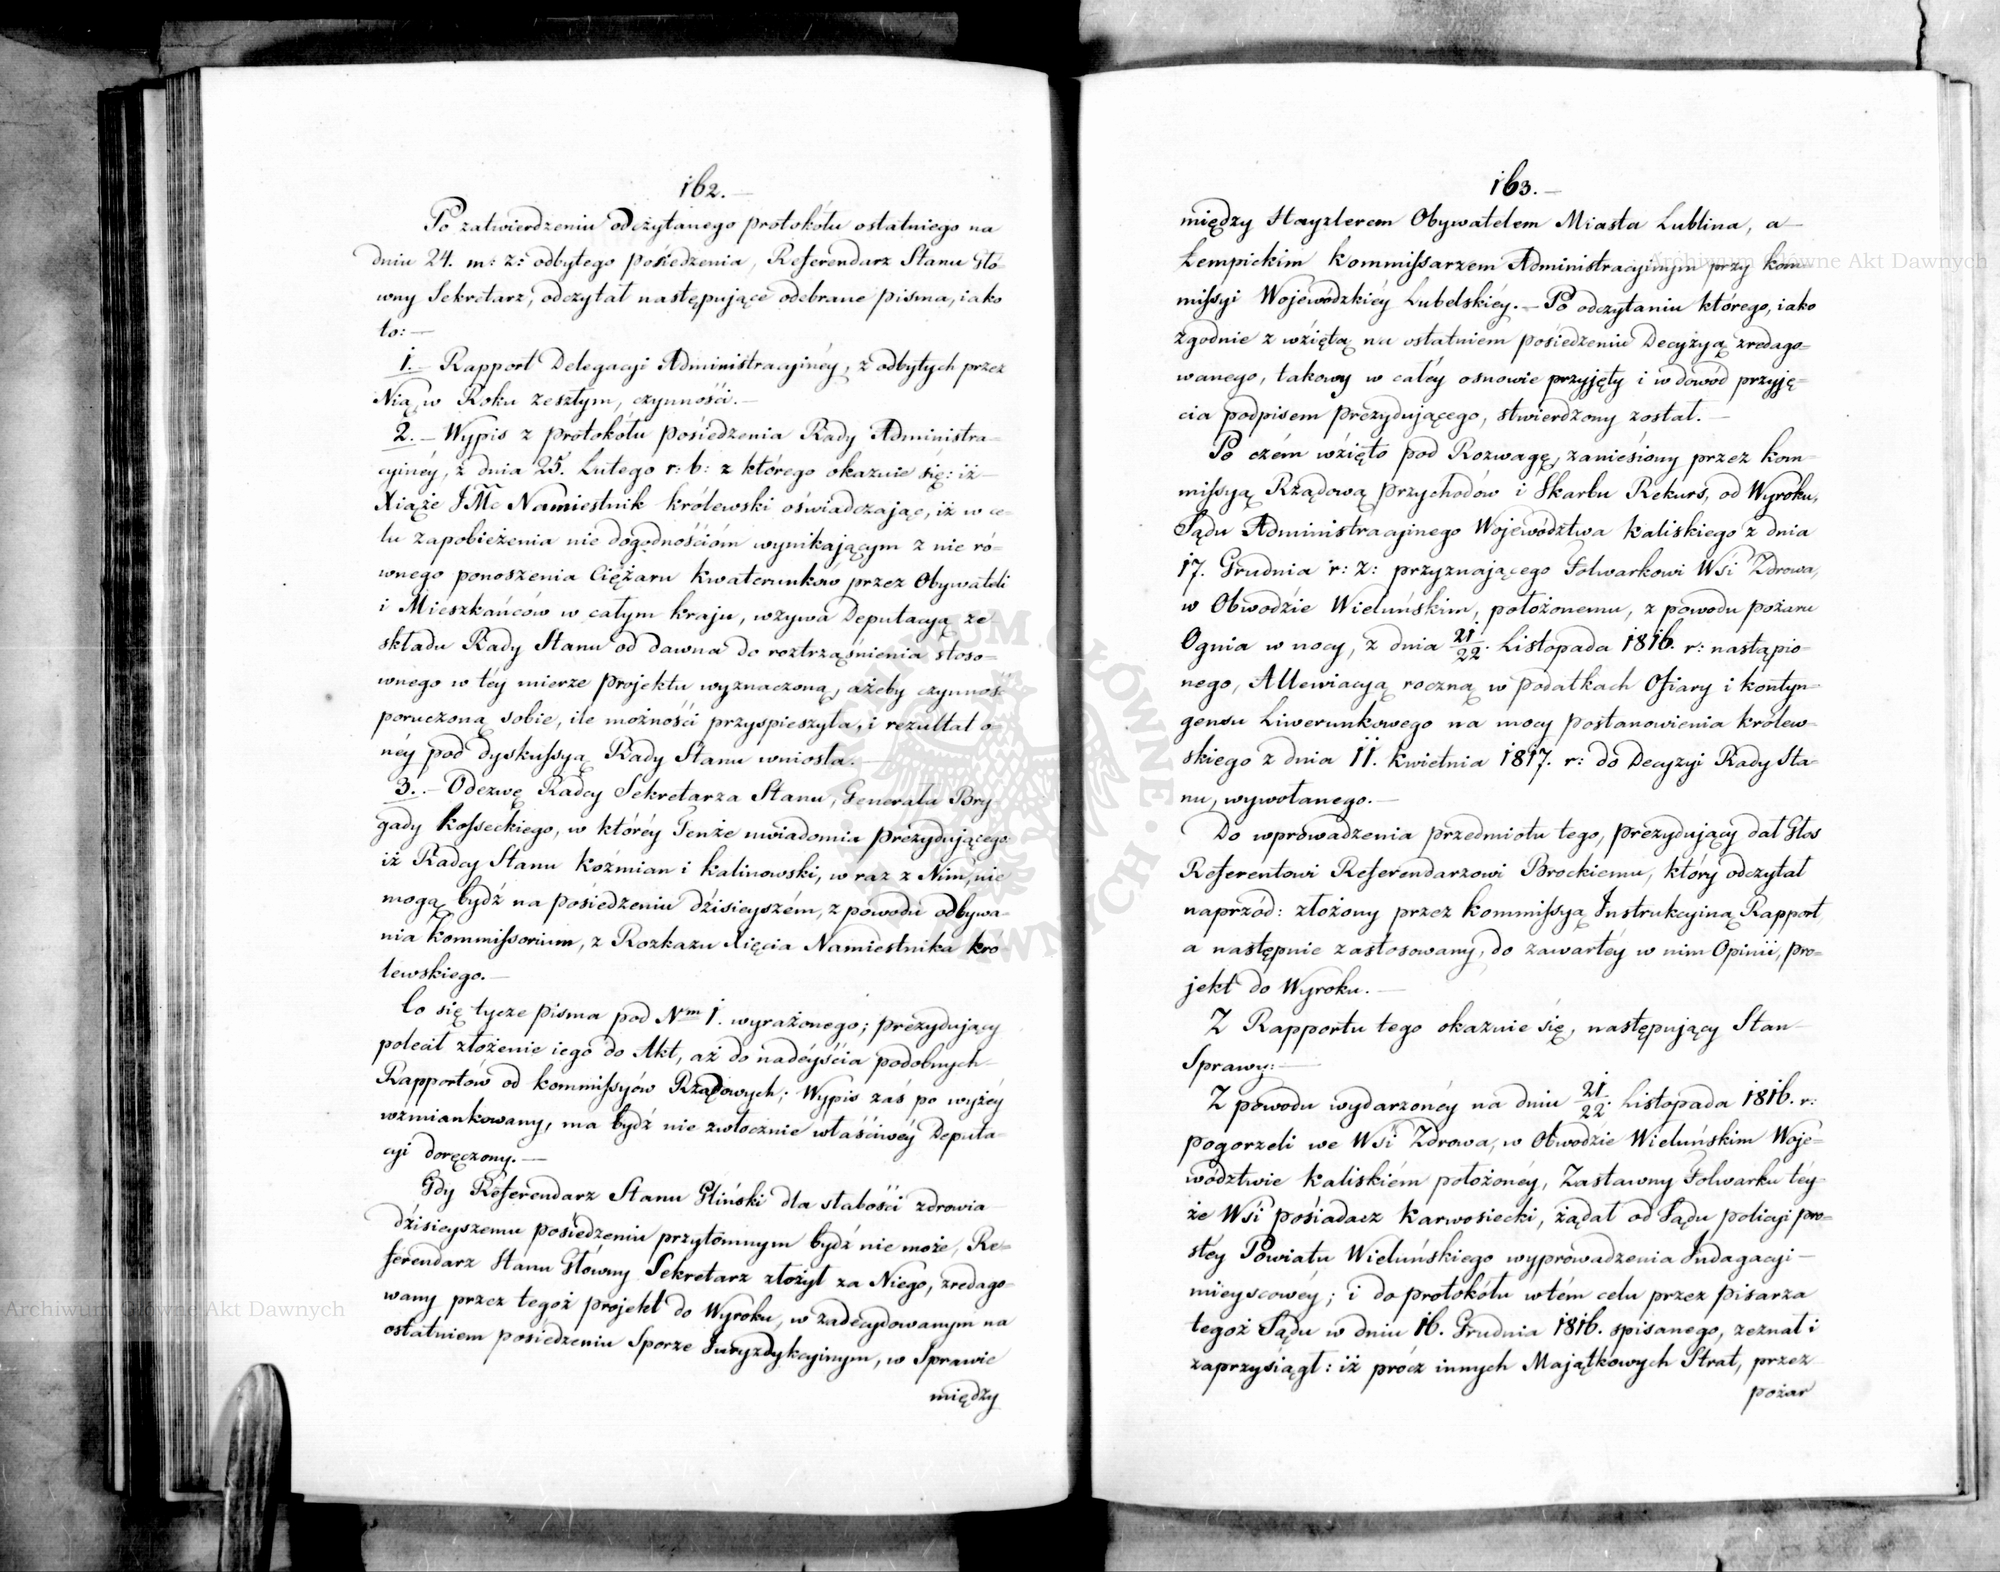 162.—
Po zatwierdzeniu odczytanego protokółu ostatniego na
dniu 24. m: z: odbytego posiedzenia, Referendarz Stanu Głó-
wny Sekretarz, odczytał następujące odebrane pisma, iako
to:—
1.— Rapport Delegacyi Administracyinéy, z odbytych przez
Nią, w Roku zeszłym, czynności.—
2.— Wypis z protokółu posiedzenia Rady Administra-
cyinéy, z dnia 25. Lutego r: b: z którego okazuie się: iż
Xiąże JMć Namiestnik królewski oświadczając, iż w ce-
lu zapobieżenia nie dogodnościom wynikającym z nie ró-
wnego ponoszenia Ciężaru kwaterunkow przez Obywateli
i Mieszkańców w całym kraju, wzywa Deputacyą ze
składu Rady Stanu od dawna do roztrząśnienia stoso-
wnego w téy mierze projektu wyznaczoną, ażeby czynność
poruczoną sobie, ile możności przyspieszyła, i rezultat o-
néy pod dyskussyą Rady Stanu wniosła.—
3.— Odezwę Radcy Sekretarza Stanu, Generała Bry-
gady Kosseckiego, w któréy Tenże uwiadomia prezydującego
iż Radcy Stanu Koźmian i Kalinowski, w raz z Nim, nie
mogą bydź na posiedzeniu dzisieyszém, z powodu odbywa-
nia kommissorium, z Rozkazu Xięcia Namiestnika kró
lewskiego.—
Co się tycze pisma pod Nrm 1. wyrażonego; prezydujący
polecił złożenie iego do Akt, aż do nadéyścia podobnych
Rapportów od kommissyów Rządowych; Wypis zaś po wyżéy
wzmiankowany, ma bydź nie zwłocznie właściwéy Deputa-
cyi doręczony.—
Gdy Referendarz Stanu Gliński dla słabości zdrowia
dzisieyszemu posiedzeniu przytomnym bydź nie może, Re-
ferendarz Stanu Główny Sekretarz złożył za Niego, zredago-
wany przez tegoż projekt do Wyroku, w zadecydowanym na
ostatniem posiedzeniu Sporze Juryzdykcyinym, w Sprawie
między
163.—
między Hayzlerem Obywatelem Miasta Lublina, a
Łempickim kommissarzem Administracyinym przy kom-
missyi Wojewódzkiéy Lubelskiéy.— Po odczytaniu którego, iako
zgodnie z wziętą na ostatniem posiedzeniu Decyzyą zredago-
wanego, takowy w całéy osnowie przyjęty i w dowód przyję-
cia podpisem prezydującego, stwierdzony został.—
Po czém wzięto pod Rozwagę, zaniesiony przez kom-
missyą Rządową przychodów i Skarbu Rekurs, od Wyroku,
Sądu Administracyinego Województwa kaliskiego z dnia
17. Grudnia r: z: przyznającego Folwarkowi Wsi Zdrowa,
w Obwodzie Wieluńskim, położonemu, z powodu pożaru
Ognia w nocy, z dnia 21/22. Listopada 1816. r: nastąpio-
nego, Allewiacyą roczną w podatkach Ofiary i kontyn-
gensu Liwerunkowego na mocy postanowienia królew-
skiego z dnia 11. kwietnia 1817. r: do Decyzyi Rady Sta-
nu, wywołanego.—
Do wprowadzenia przedmiotu tego, prezydujący dał Głos
Referentowi Referendarzowi Brockiemu, który odczytał
naprzód: złożony przez kommissyą Instrukcyiną Rapport
a następnie zastosowany, do zawartéy w nim Opinii, pro-
jekt do Wyroku.—
Z Rapportu tego okazuie się, następujący Stan
Sprawy:—
Z powodu wydarzonéy na dniu 21/22. Listopada 1816. r:
pogorzeli we Wsi Zdrowa, w Obwodzie Wieluńskim Woje-
wództwie kaliskiém położonéy, Zastawny Folwarku téy-
że Wsi posiadacz Karwosiecki, żądał od Sądu policyi pro-
stéy Powiatu Wieluńskiego wyprowadzenia Indagacyi
mieyscowéy; i do protokółu w tém celu przez pisarza
tegoż Sądu w dniu 16. Grudnia 1816. spisanego, zeznał i
zaprzysiągł: iż prócz innych Majątkowych Strat, przez
pożar
Archiwum Główne Akt Dawnych
Archiwum Główne Akt Dawnych
ARCHIWUM GŁÓWNE AKT DAWNYCH